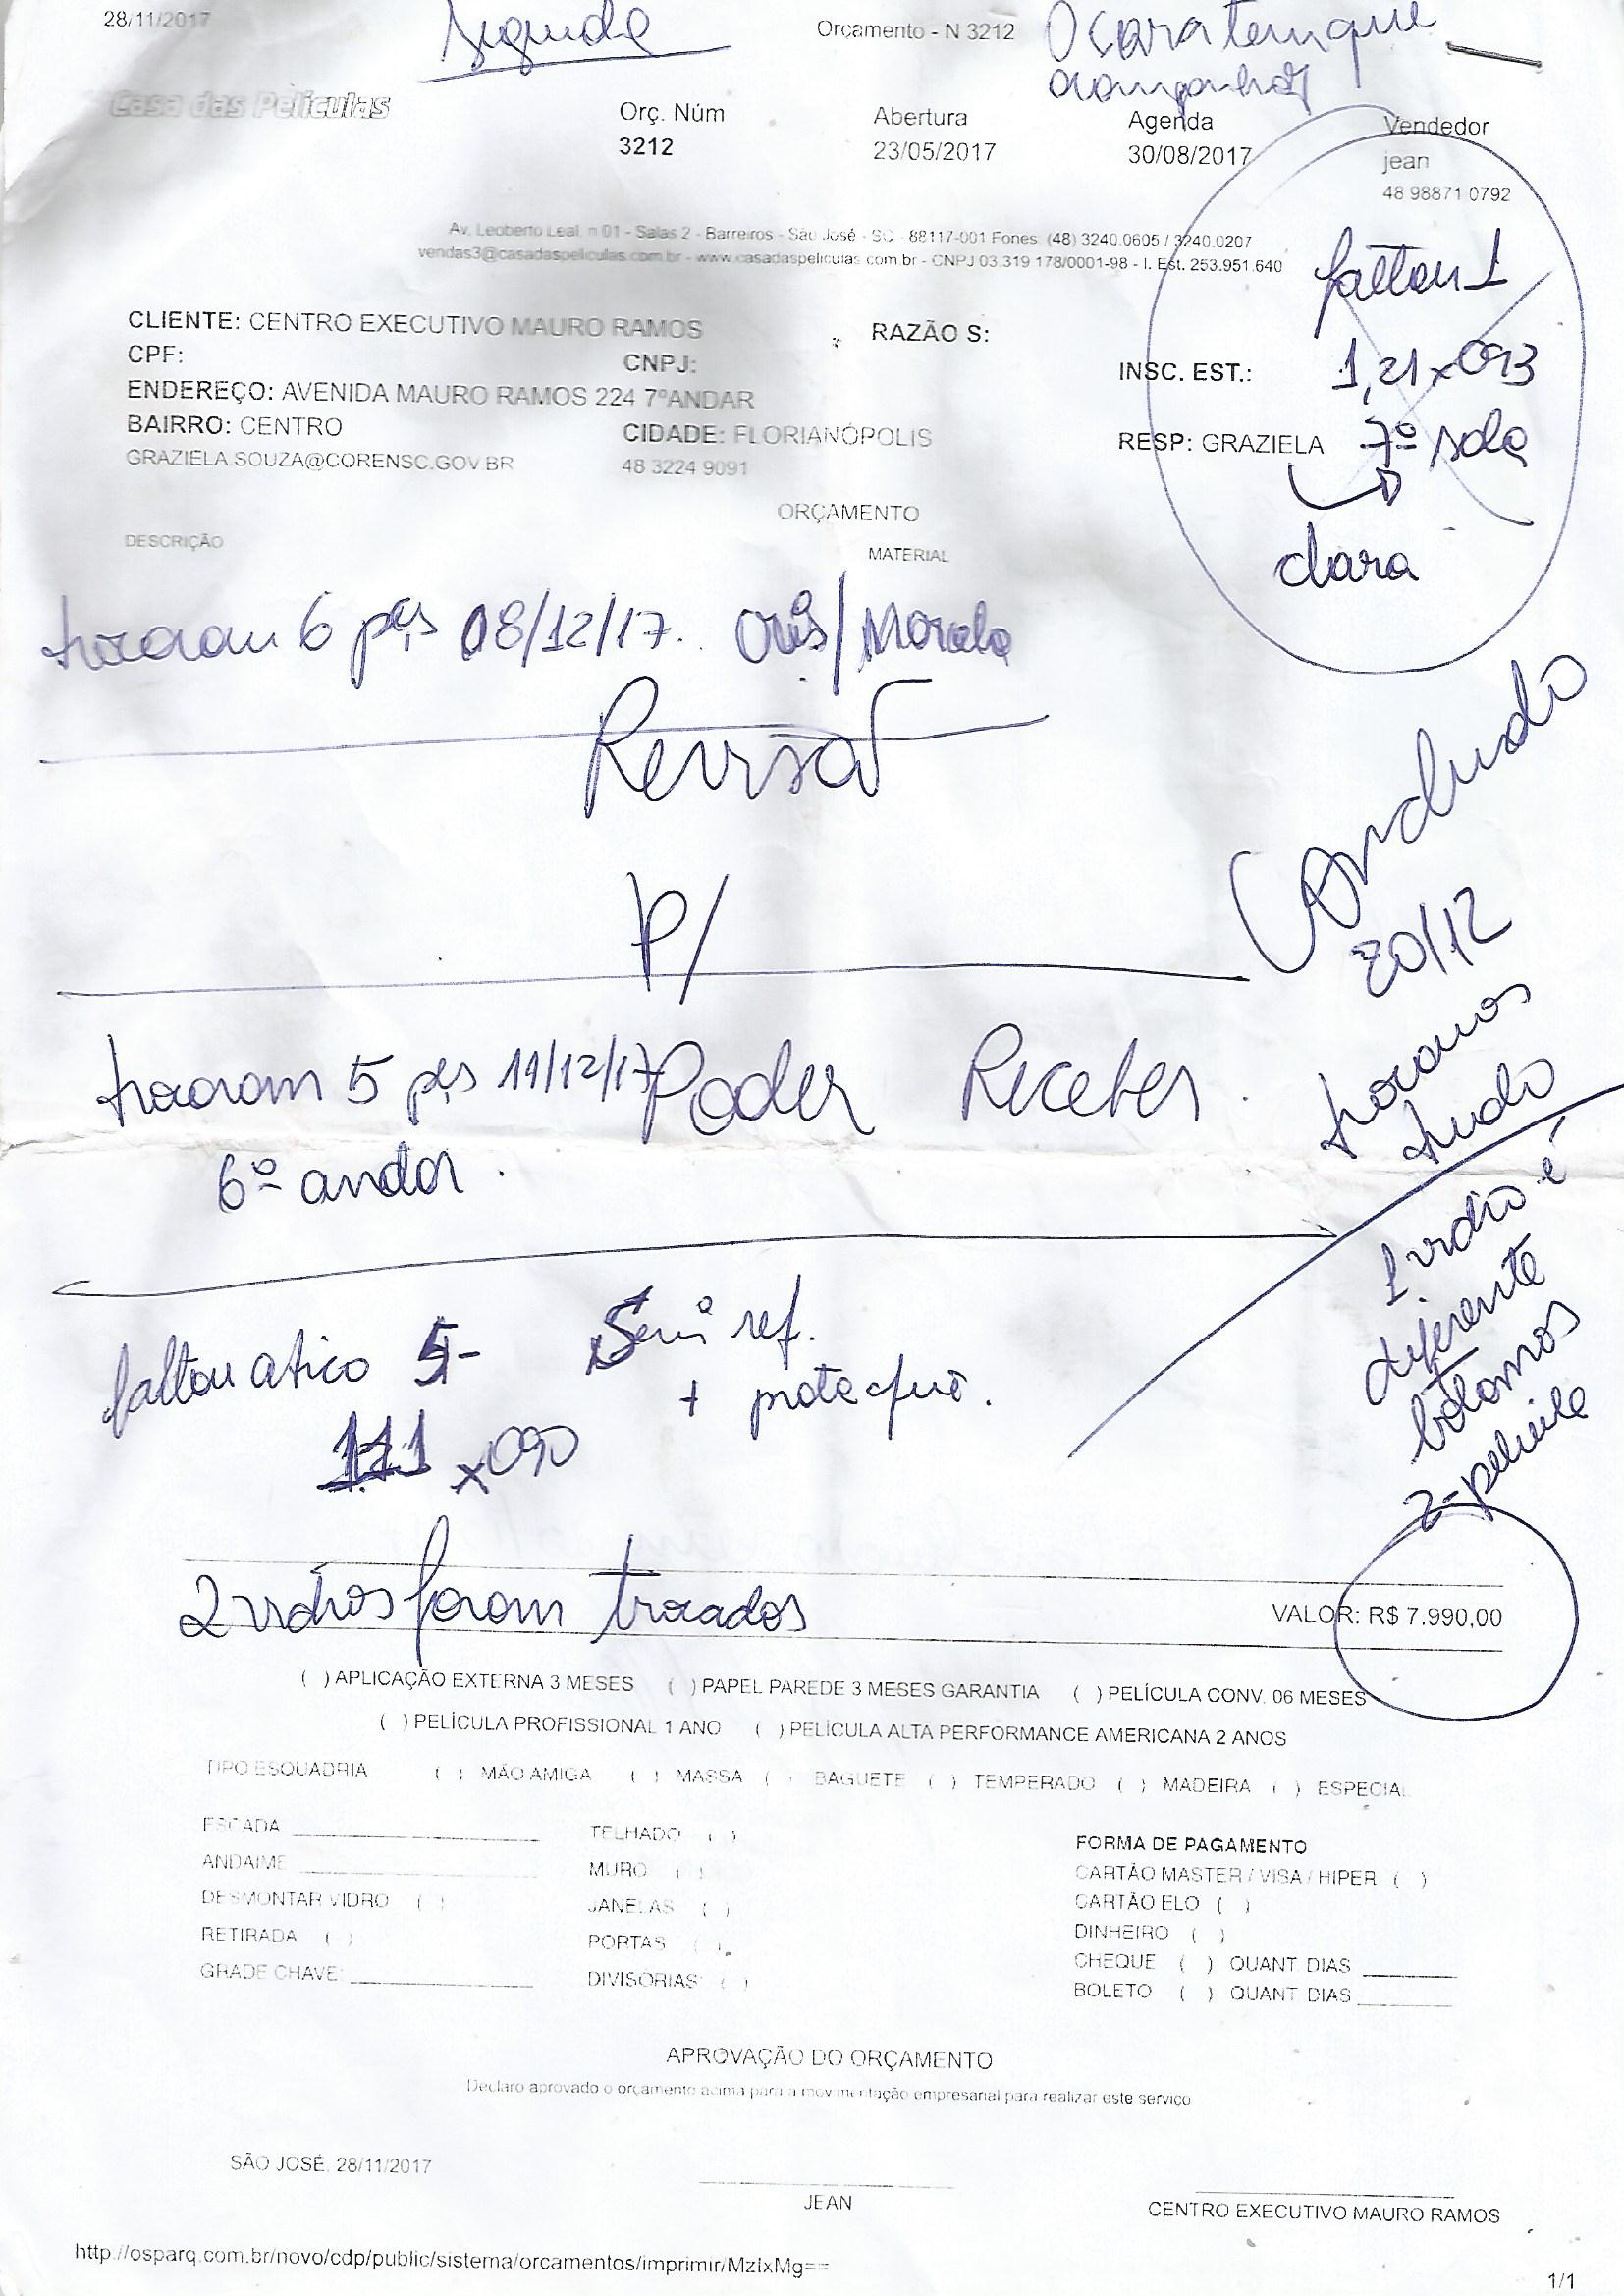 28/11/2017
segunda
Orçamento - N 3212
O cara tem que
acompanhar
Casa das Películas
Orç. Núm
3212
Abertura
23/05/2017
Agenda
30/08/2017
Vendedor
jean
48 98871 0792
Av. Leoberto Leal, n 01 - Salas 2 - Barreiros - São José - SC - 88117-001 Fones: (48) 3240.0605 / 3240.0207
vendas3@casadaspeliculas.com.br - www.casadaspeliculas.com.br - CNPJ 03.319.178/0001-98 - I. Est. 253.951.640
faltou 1
1,21 x 093
7º sala
clara
CLIENTE: CENTRO EXECUTIVO MAURO RAMOS
RAZÃO S:
CPF:
CNPJ:
INSC. EST.:
ENDEREÇO: AVENIDA MAURO RAMOS 224 7ºANDAR
BAIRRO: CENTRO
CIDADE: FLORIANÓPOLIS
RESP: GRAZIELA
GRAZIELA.SOUZA@CORENSC.GOV.BR
48 3224 9091
ORÇAMENTO
DESCRIÇÃO
MATERIAL
trocaram 6 pçs 08/12/17. Cris/
Revisar
P/
Poder Receber
Concluido
20/12
trocamos
tudo
trocaram 5 pçs 11/12/17
6º andar.
1 vidro é
diferente
botamos
2-pelicula
faltou atico 5-
111 x 090
Sem ref.
+
2 vidros foram trocados
VALOR: R$ 7.990,00
( ) APLICAÇÃO EXTERNA 3 MESES ( ) PAPEL PAREDE 3 MESES GARANTIA ( ) PELÍCULA CONV. 06 MESES
( ) PELÍCULA PROFISSIONAL 1 ANO ( ) PELÍCULA ALTA PERFORMANCE AMERICANA 2 ANOS
TIPO ESQUADRIA ( ) MÃO AMIGA ( ) MASSA ( ) BAGUETE ( ) TEMPERADO ( ) MADEIRA ( ) ESPECIAL
ESCADA
ANDAIME
DESMONTAR VIDRO ( )
RETIRADA ( )
GRADE CHAVE:
TELHADO ( )
MURO ( )
JANELAS ( )
PORTAS ( )
DIVISÓRIAS: ( )
FORMA DE PAGAMENTO
CARTÃO MASTER / VISA / HIPER ( )
CARTÃO ELO ( )
DINHEIRO ( )
CHEQUE ( ) QUANT DIAS
BOLETO ( ) QUANT DIAS
APROVAÇÃO DO ORÇAMENTO
Declaro aprovado o orçamento acima para a movimentação empresarial para realizar este serviço
SÃO JOSÉ, 28/11/2017
JEAN
CENTRO EXECUTIVO MAURO RAMOS
http://osparq.com.br/novo/cdp/public/sistema/orcamentos/imprimir/MzIxMg==
1/1